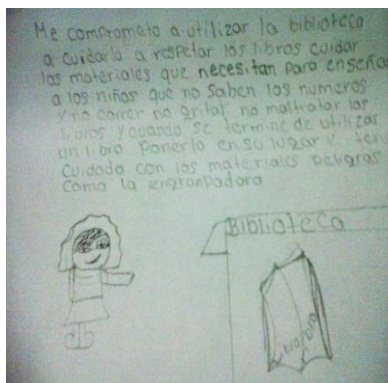 Me comprometo a utilizar la biblioteca
a cuidarla a respetar los libros cuidar
los materiales que necesitan para enseña
a los niños que no saben los numeros
y no correr no gritar no maltratar los
libros y cuando se termine de utilizar
un libro ponerlo en su lugar y ten
cuidado con los materiales peligros
como la engranpadora
Biblioteca